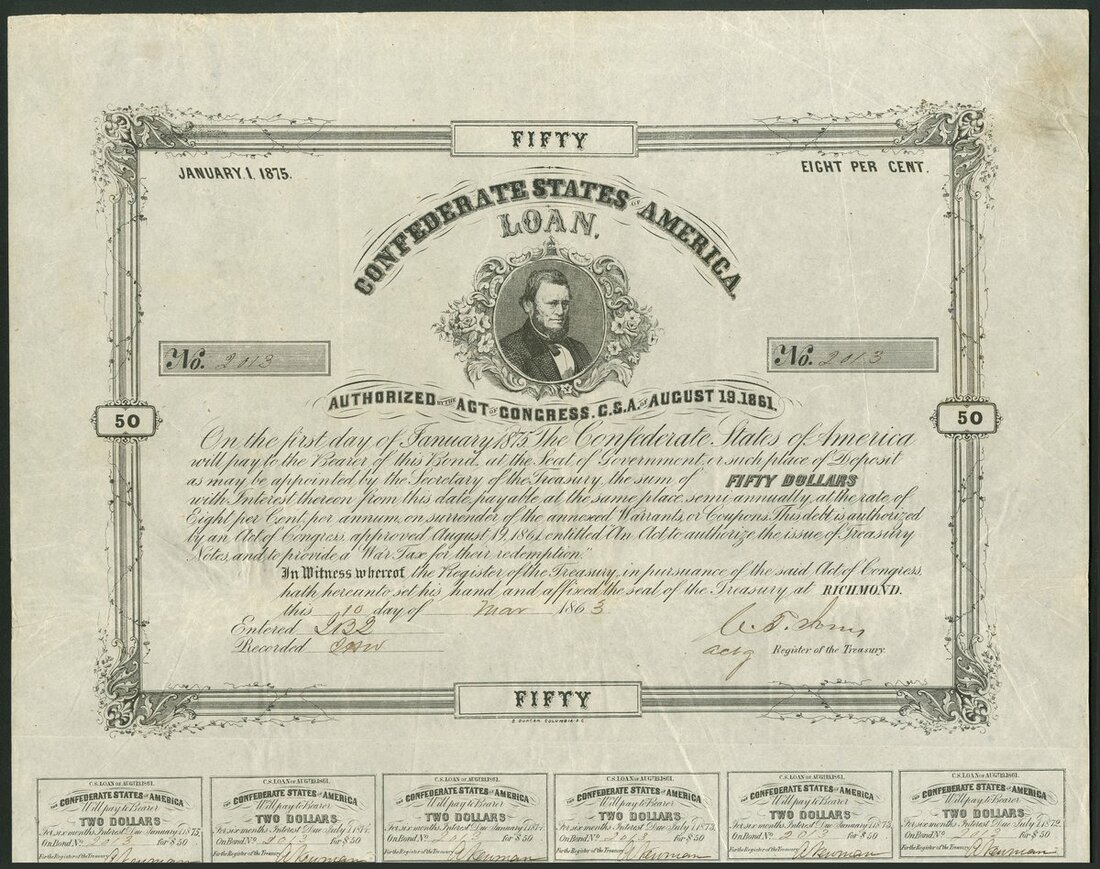 FIFTY
JANUARY. 1. 1875.
EIGHT PER CENT.
CONFEDERATE STATES OF AMERICA.
LOAN.
No. 2013
No. 2013
AUTHORIZED BY THE ACT OF CONGRESS. C.S.A. OF AUGUST 19. 1861.
50
50
On the first day of January 1875 The Confederate States of America
will pay to the Bearer of this Bond, at the Seat of Government, or such place of Deposit
as may be appointed by the Secretary of the Treasury, the sum of FIFTY DOLLARS
with Interest thereon from this date, payable at the same place, semi-annually, at the rate of
Eight per Cent, per annum, on surrender of the annexed Warrants, or Coupons. This debt is authorized
by an Act of Congress, approved August 19, 1861, entitled "An Act to authorize the issue of Treasury
Notes, and to provide a War Tax for their redemption."
In Witness whereof, the Register of the Treasury, in pursuance of the said Act of Congress,
hath hereunto set his hand, and affixed the seal of the Treasury, at RICHMOND.
this 10 day of Mar 1863
Entered
Recorded
actg Register of the Treasury.
FIFTY
COLUMBIA S.C.
C.S. LOAN OF AUG. 19. 1861.
THE CONFEDERATE STATES OF AMERICA
Will pay to Bearer
TWO DOLLARS
For six months Interest Due January 1, 1875.
On Bond No. 2013 for $50
For the Register of the Treasury
C.S. LOAN OF AUG. 19. 1861.
THE CONFEDERATE STATES OF AMERICA
Will pay to Bearer
TWO DOLLARS
For six months Interest Due July 1, 1874.
On Bond No. 2013 for $50
For the Register of the Treasury
C.S. LOAN OF AUG. 19. 1861.
THE CONFEDERATE STATES OF AMERICA
Will pay to Bearer
TWO DOLLARS
For six months Interest Due January 1, 1874.
On Bond No. 2013 for $50
For the Register of the Treasury
C.S. LOAN OF AUG. 19. 1861.
THE CONFEDERATE STATES OF AMERICA
Will pay to Bearer
TWO DOLLARS
For six months Interest Due July 1, 1873.
On Bond No. 2013 for $50
For the Register of the Treasury
C.S. LOAN OF AUG. 19. 1861.
THE CONFEDERATE STATES OF AMERICA
Will pay to Bearer
TWO DOLLARS
For six months Interest Due January 1, 1873.
On Bond No. 2013 for $50
For the Register of the Treasury
C.S. LOAN OF AUG. 19. 1861.
THE CONFEDERATE STATES OF AMERICA
Will pay to Bearer
TWO DOLLARS
For six months Interest Due July 1, 1872.
On Bond No. 2013 for $50
For the Register of the Treasury